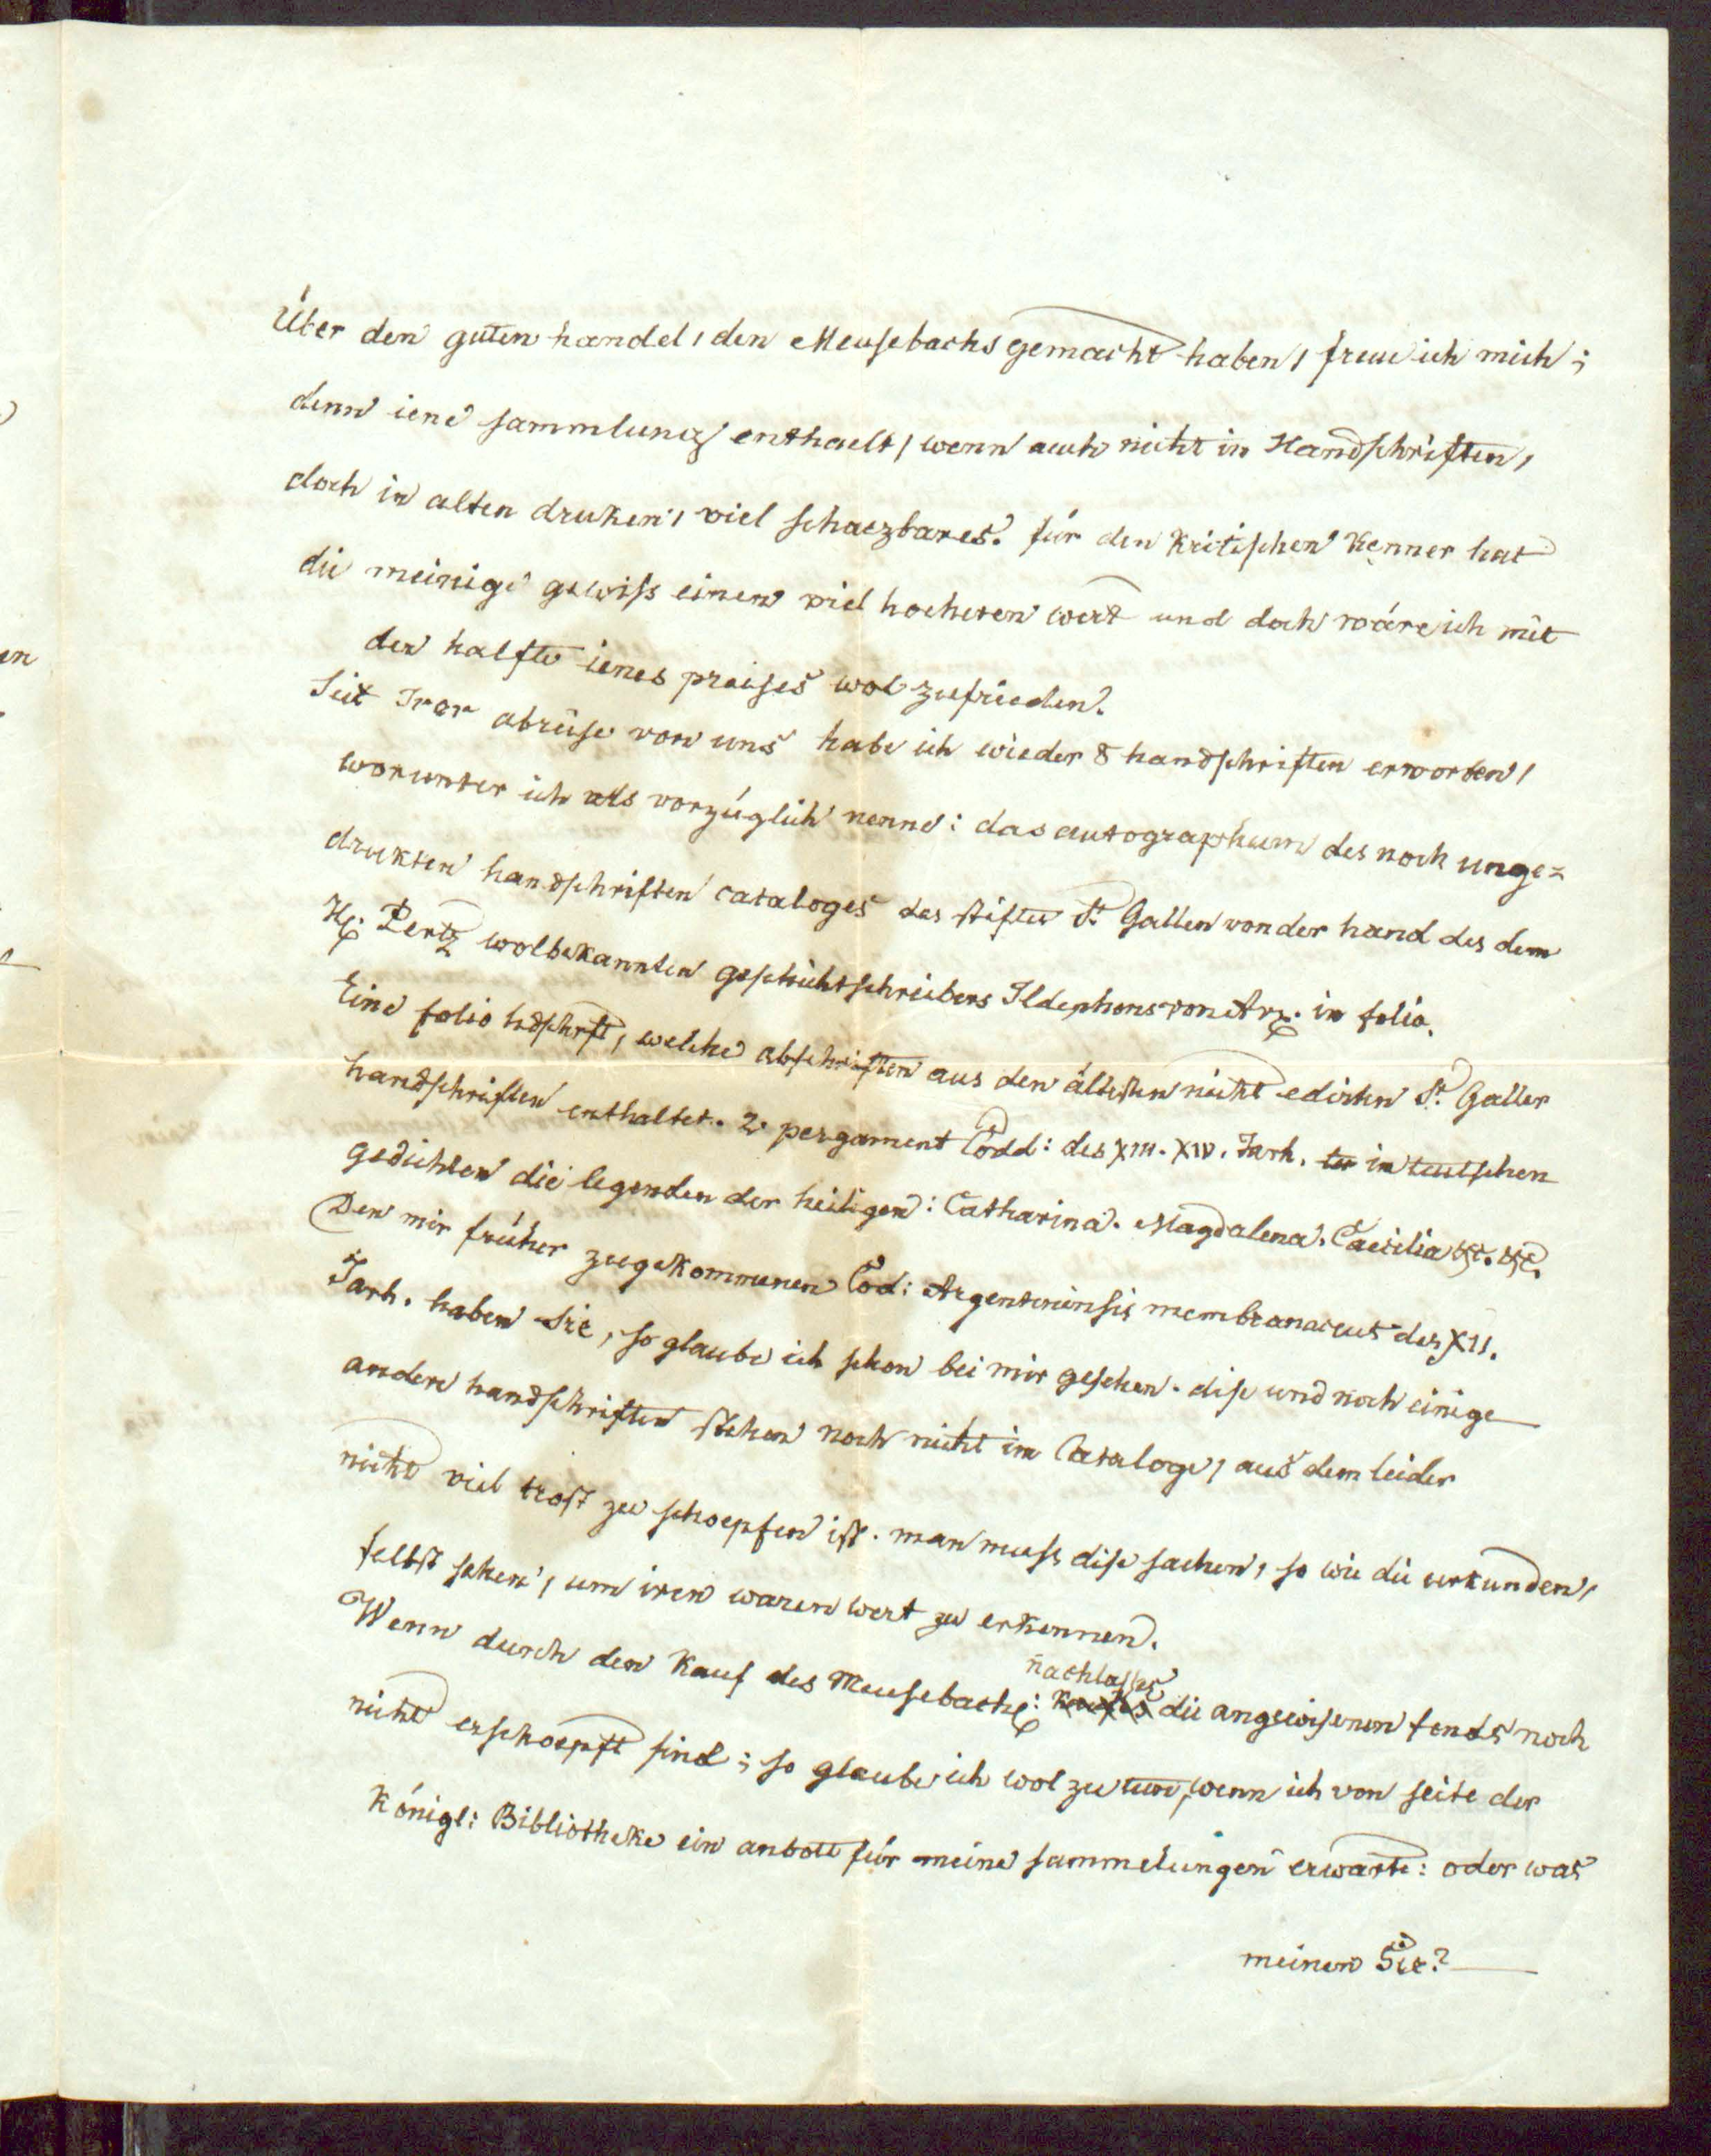 Über den guten handel, den Meusebachs gemacht haben, freue ich mich;
denn iene sammlung enthaelt, wenn auch nicht in Handschriften,
doch in alten druken, viel schaezbares. für den kritischen kenner hat
die meinige gewiss einen viel hoeheren wert und doch wäre ich mit
der halfte ienes preises wol zufrieden.
Seit Irer abreise von uns habe ich wieder 8 handschriften erworben,
worunter ich als vorzüglich nenne: das autographum des noch unge=
drukten handschriften cataloges des stiftes St Gallen von der hand des dem
H: Pertz wolbekannten geschichtschreibers Ildephons von Arx. in folio.
Eine folio hdschrft, welche abschriften aus den ältesten nicht edirten St. Galler
handschriften enthaltet. 2. pergament Codd: des XIII. XIV. Jarh. in teutschen
gedichten die legenden der heiligen: Catharina. Magdalena. Caecilia etc. etc.
Den mir früher zugekommenen Cod: Argentinensis membranaceus des XII.
Jarh. haben Sie, so glaube ich schon bei mir gesehen. dise und noch einige
andere handschriften stehen noch nicht im Cataloge, aus dem leider
nicht viel trost zu schoepfen ist. man muss dise sachen, so wie die urkunden,
selbst sehen, um iren waren wert zu erkennen.
Wenn durch den Kauf des Meusebach: nachlasses die angewisenen fonds noch
nicht erschoepft sind; so glaube ich wol zu tun, wenn ich von seite der
Königl: Bibliotheke ein anbott für meine sammelungen erwarte: oder was
meinen Sie?